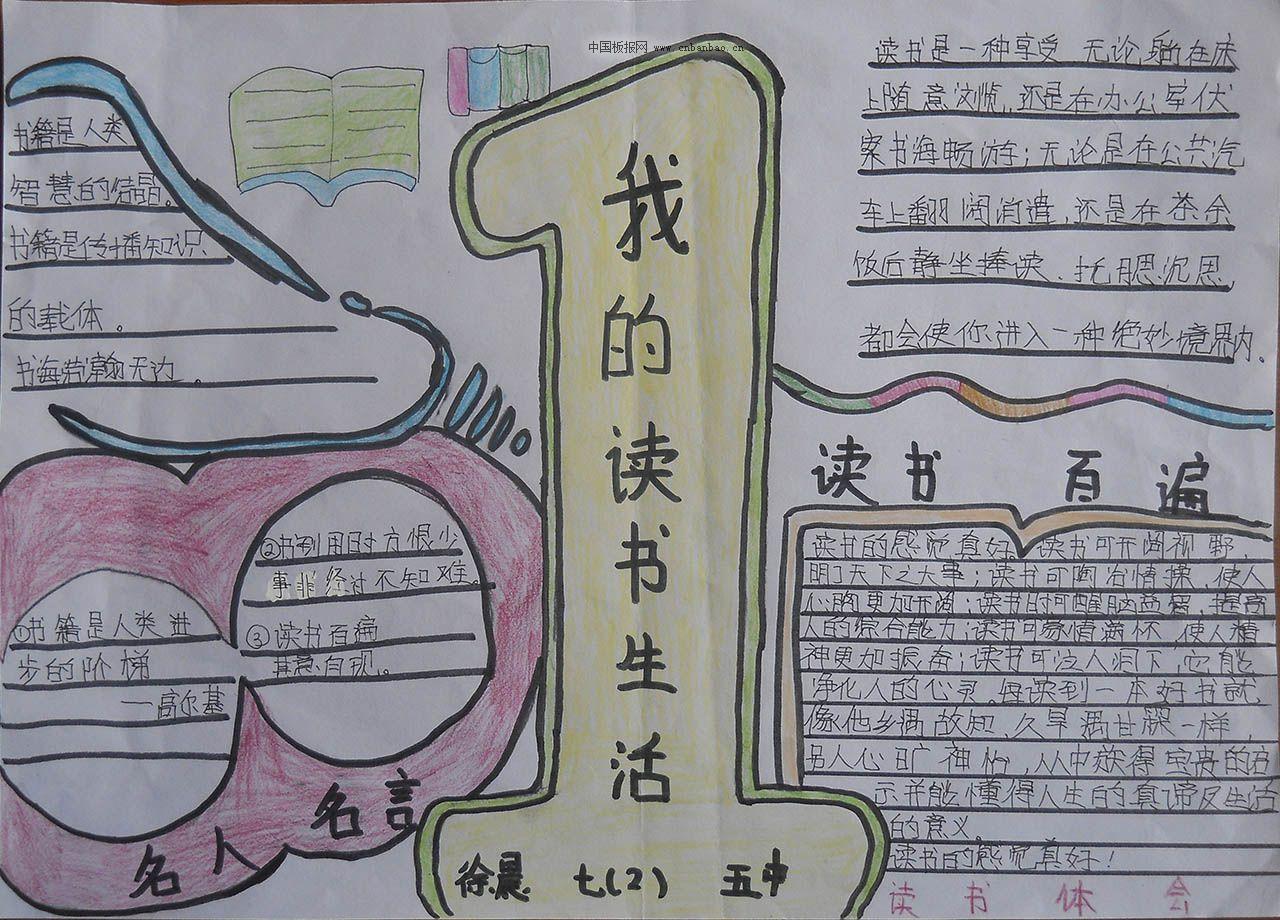 中国板报网 www.cnbanbao.cn
我的读书生活
徐晨 七(2) 五中
书籍是人类
智慧的结晶。
书籍是传播知识
的载体。
书海浩瀚无边。
读书是一种享受 无论躺在床
上随意浏览,还是在办公室伏
案书海畅游;无论是在公共汽
车上翻阅消遣,还是在茶余
饭后静坐捧读、托腮沉思,
都会使你进入一种绝妙境界内.
①书籍是人类进
步的阶梯
—高尔基
②书到用时方恨少
事非经过不知难。
③读书百遍
其意自现。
名人名言
读书百遍
读书的感觉真好。读书可开阔视野,
明了天下之大事;读书可陶冶情操,使人
心胸更加开阔;读书时可醒脑益智,提高
人的综合能力;读书可豪情满怀,使人精
神更加振奋;读书可泣人泪下,它能
净化人的心灵。每读到一本好书就
像他乡遇故知、久旱遇甘霖一样,
另人心旷神怡,从中获得宝贵的启
示并能懂得人生的真谛及生活
的意义。
读书的感觉真好!
读书体会